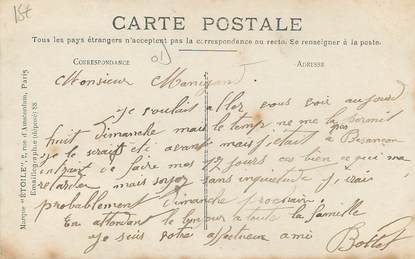 15€
CARTE POSTALE
Tous les pays étrangers n'acceptent pas la correspondance au recto. Se renseigner à la poste.
CORRESPONDANCE
ADRESSE
Marque "ÉTOILE", 2, rue d'Amsterdam, Paris
Émaillographie (déposé) 88
Monsieur Manigand
je voulait aller vous voir aujourd
huit Dimanche mais le temp ne me la permit
je le serait été avant mais j'étais à Besançon
entrant de faire mes 17 jours ces bien ce qui ma
retarder mais soyez sans inquiétude j'irai
probablement Dimanche prochain.
En attendant le bonjour a toute la famille
je suis votre affectueux ami Bottot